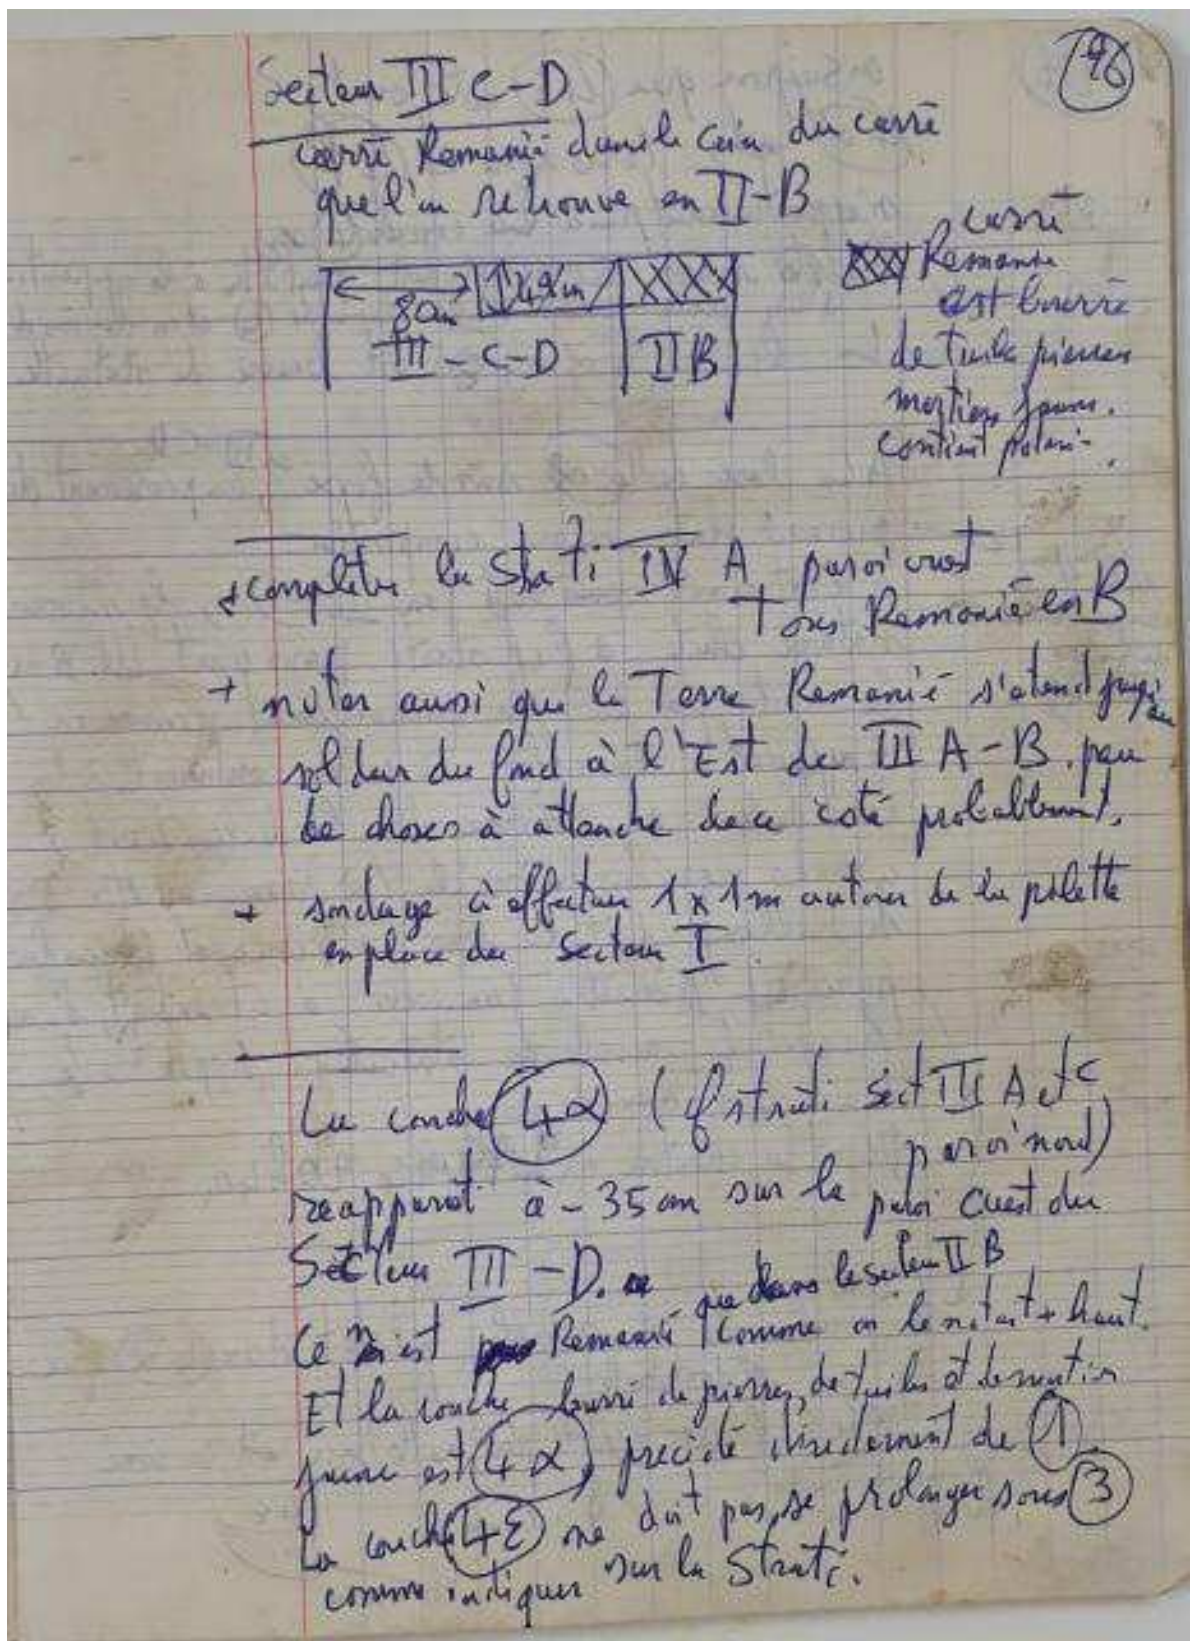 96
Secteur III C-D
carré Remanié dans le coin du carré
que l'on retrouve en II-B
carré
Remanié
est bourré
de tuiles pierres
mortier jaune.
contient poteri-
80cm
III - C-D
II B
+ compléter la Strati IV A paroi ouest
+ Remanié en B
+ noter aussi que la Terre Remanié s'étend jusqu'au
du fond à l'Est de III A-B. peu
de choses à attendre de ce côté probablement.
+ sondage à effectuer 1x1m autour de la pilette
en place du Secteur I.
La couche 4α (cf strati Sect III A et C
paroi nord)
reapparait à -35 cm sur la paroi ouest du
Secteur III - D.
que dans le secteur II B
Ce n'est Remanié comme on le notait + haut.
Et la couche bourré de pierres, de tuiles et de mortier
jaune est 4α précédé directement de 1.
La couche 4ε ne doit pas se prolonger sous 3
comme indiquer sur la Strati.